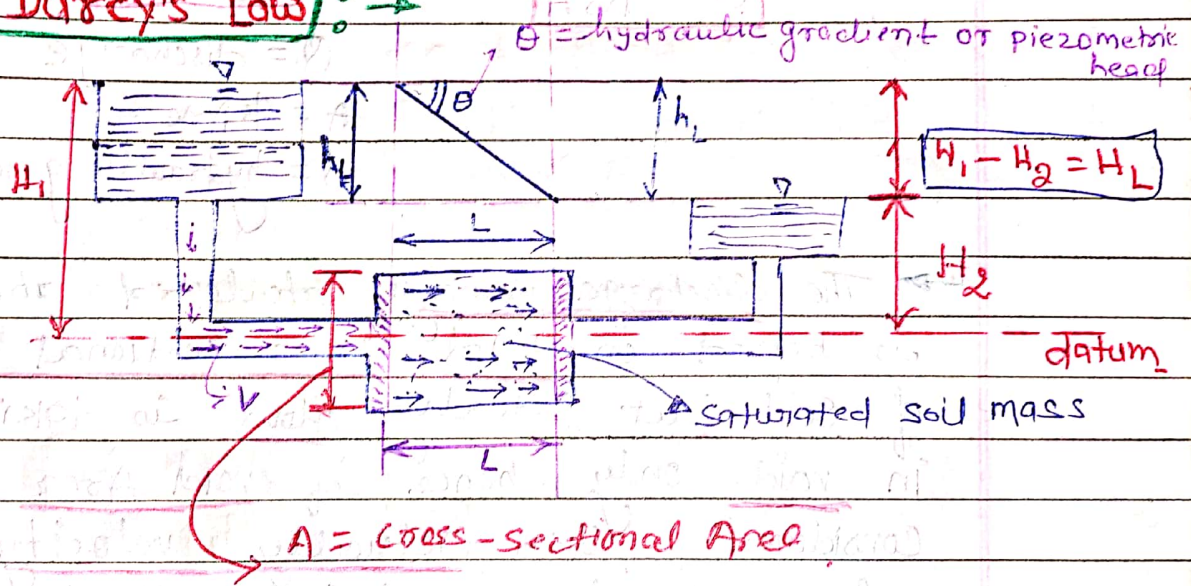 Darcy's Law :→
θ = hydraulic gradient or piezometric
head
θ
H₁
hL
hL
H₁ - H₂ = HL
L
H₂
datum
V
saturated soil mass
L
A = Cross-sectional Area